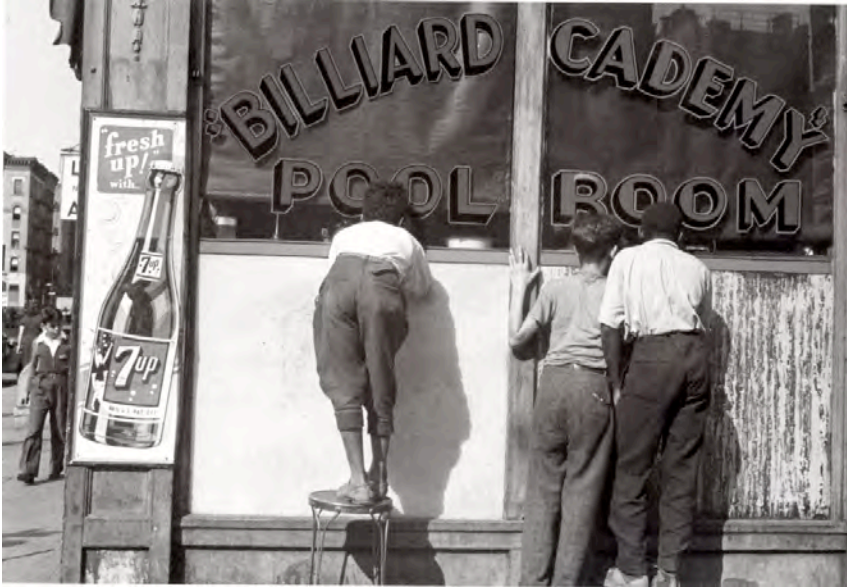 "BILLIARD CADEMY"
POOL ROOM
"fresh
up!"
with
7up
7up
L
A